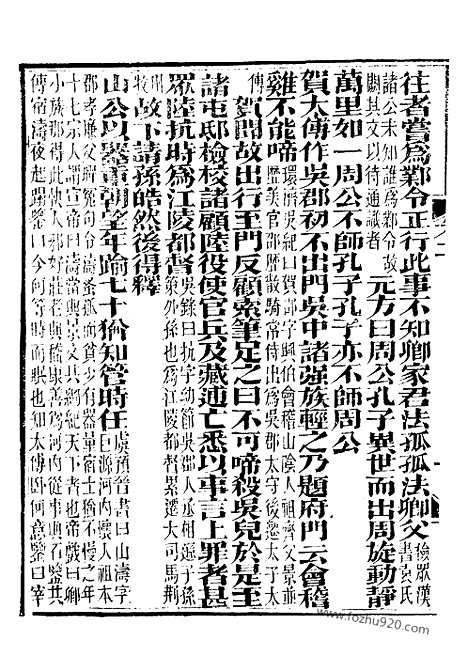 往者嘗爲鄴令正行此事不知卿家君法孤孤法卿父檢眾漢書袁氏
諸公未知誰爲鄴令故闕其文以待通識者元方曰周公孔子異世而出周旋動靜
萬里如一周公不師孔子孔子亦不師周公
賀太傅作吳郡初不出門吳中諸强族輕之乃題府門云會稽
雞不能啼環濟吳紀曰賀邵字興伯會稽山陰人祖齊父景並歷美官邵歷散騎常侍出爲吳郡太守後遷太子太
傅賀聞故出行至門反顧索筆足之曰不可啼殺吳兒於是至
諸屯邸檢校諸顧陸役使官兵及藏逋亡悉以事言上罪者甚
眾陸抗時爲江陵都督吳錄曰抗字幼節吳郡人丞相遜子孫策外孫也爲江陵都督累遷大司馬荆
州牧故下請孫皓然後得釋
山公以器重朝望年踰七十猶知管時任虞預晉書曰山濤字巨源河內懷人祖本
郡孝廉父曜冤句令濤蚤孤而貧少有器量宿士猶不慢之年十七宗人謂宣帝曰濤當與景文共綱紀天下者也帝戲曰卿
小族那得此快人邪好莊老與嵇康善爲河內從事與石鑒共傳宿濤夜起蹋鑒曰今何等時而眠也知太傅卧何意鑒曰宰
www.fozhu920.com